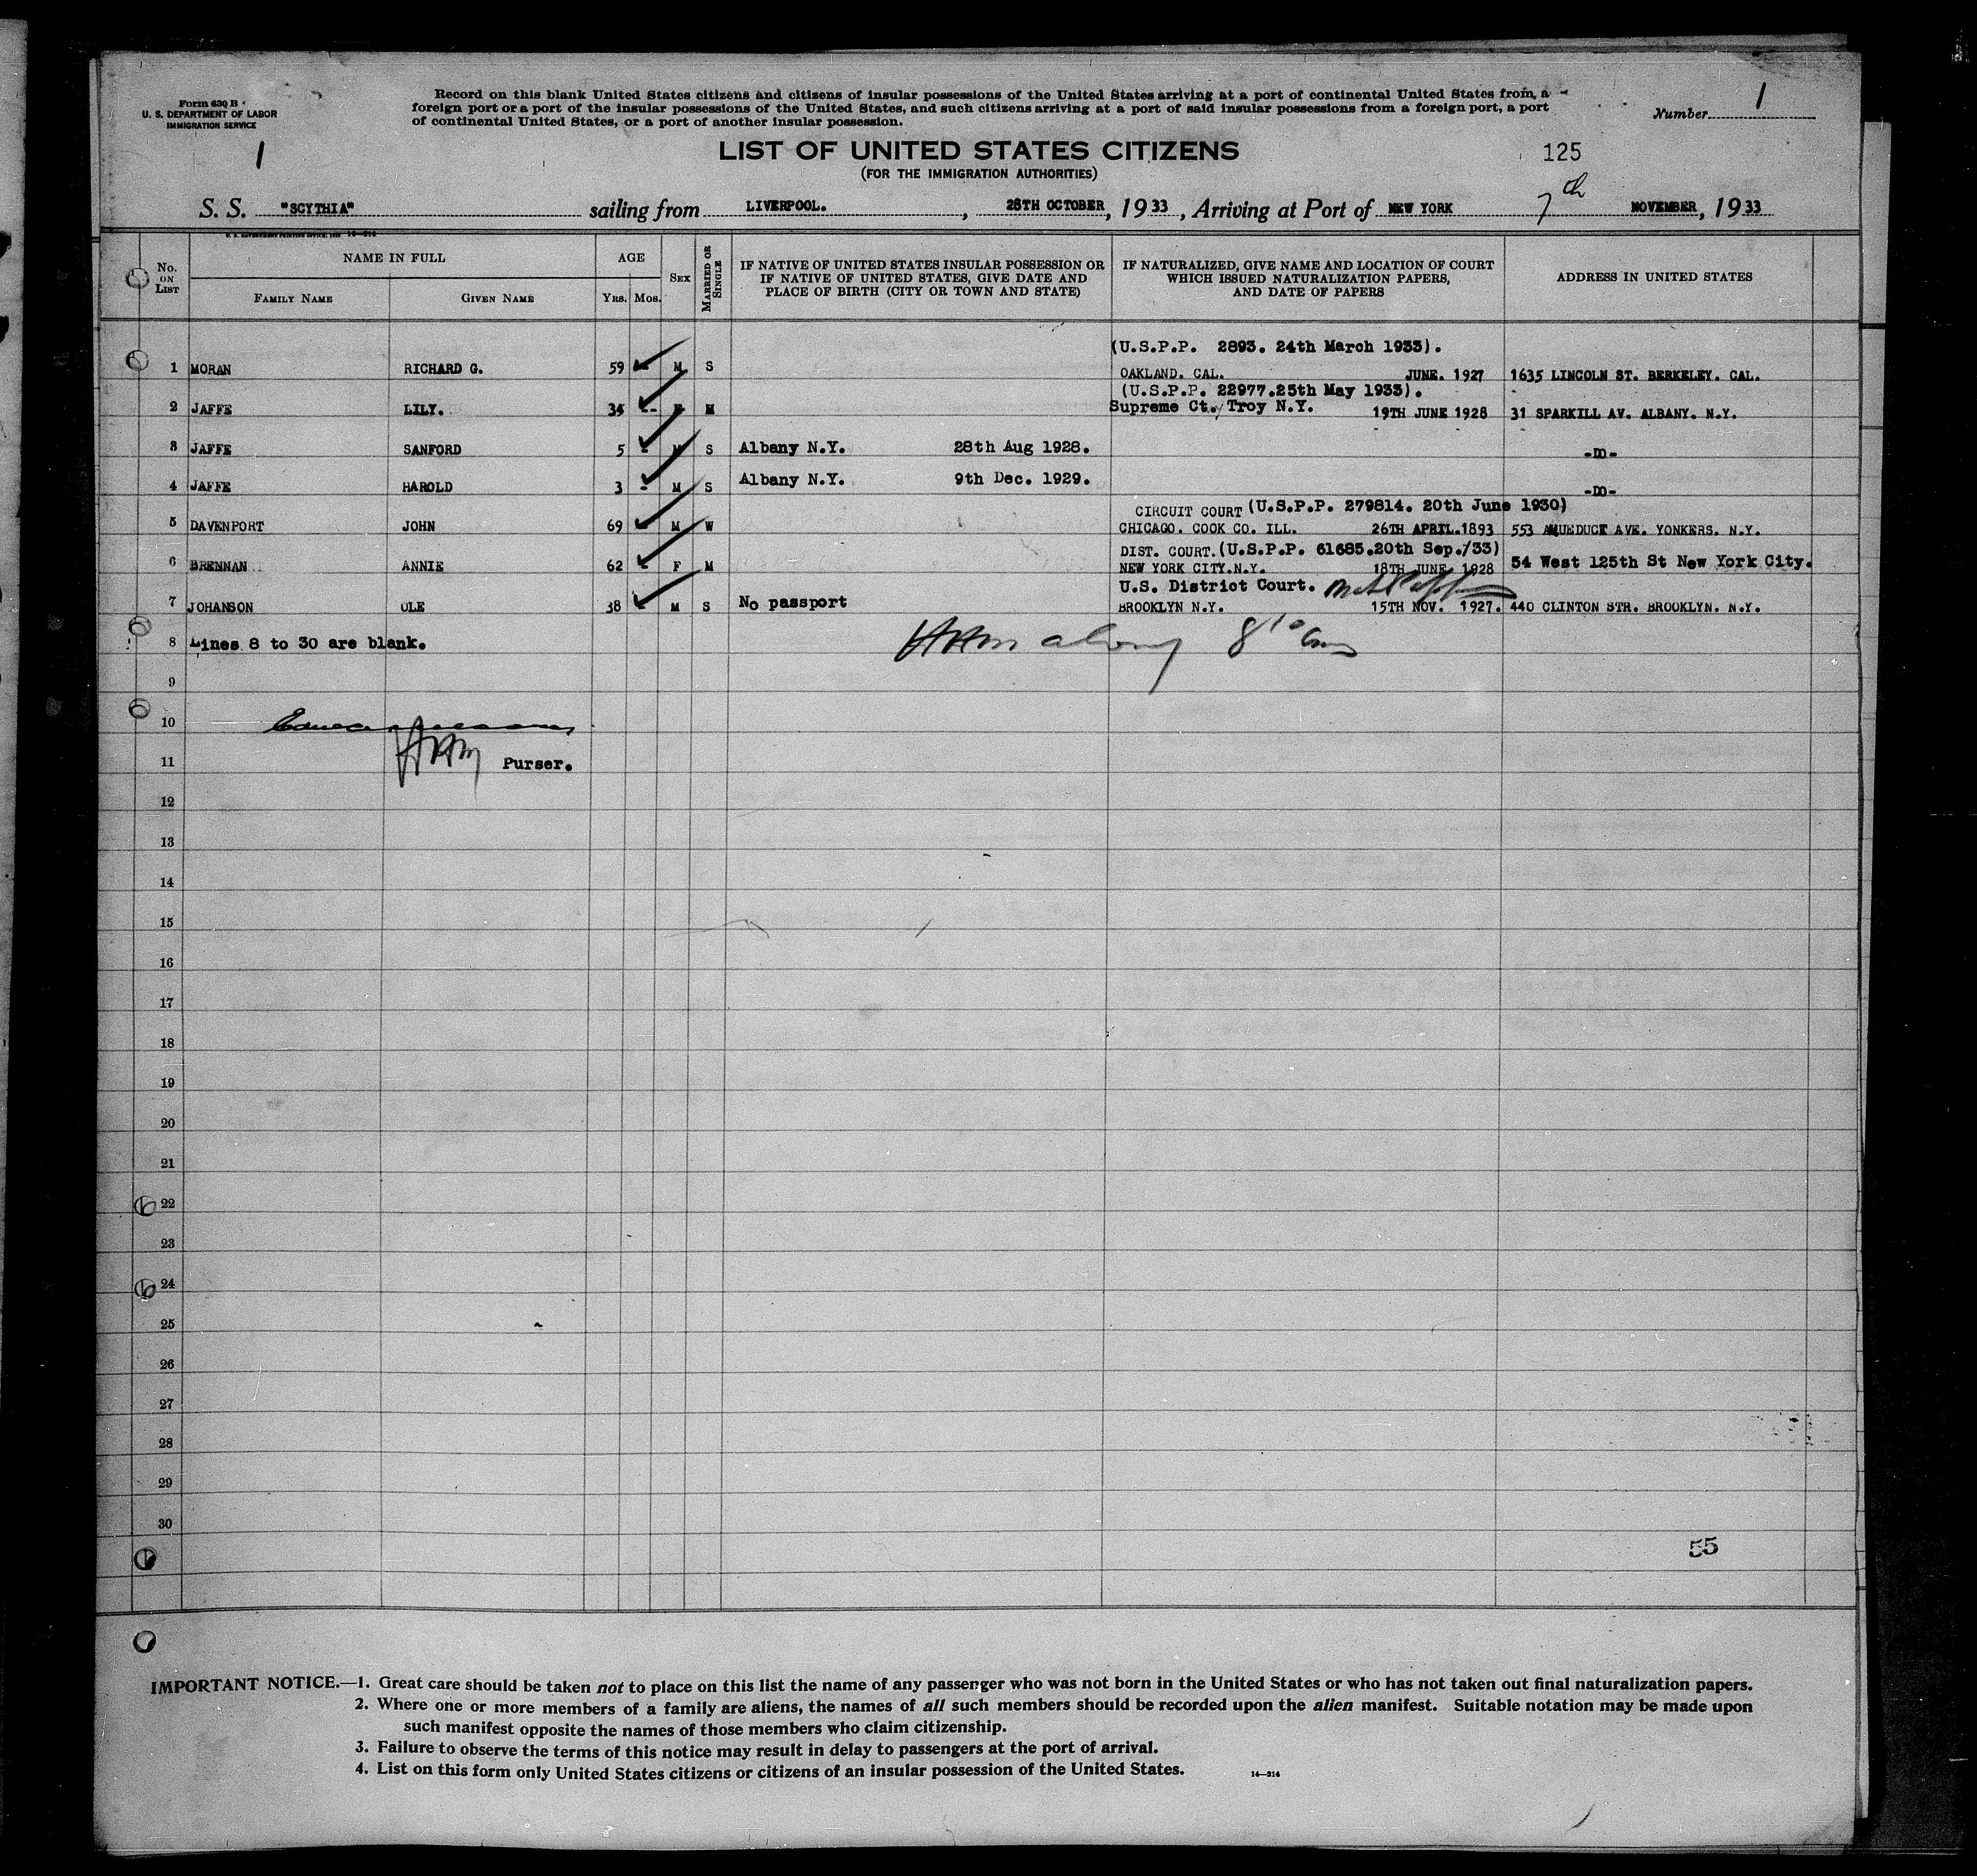 Form 630 B
U. S. DEPARTMENT OF LABOR
IMMIGRATION SERVICE
1
Record on this blank United States citizens and citizens of insular possessions of the United States arriving at a port of continental United States from, a
foreign port or a port of the insular possessions of the United States, and such citizens arriving at a port of said insular possessions from a foreign port, a port
of continental United States, or a port of another insular possession.
Number 1
LIST OF UNITED STATES CITIZENS
125
(FOR THE IMMIGRATION AUTHORITIES)
S. S. "SCYTHIA" sailing from LIVERPOOL. , 28TH OCTOBER, 1933, Arriving at Port of NEW YORK 7th NOVEMBER, 1933
No. ON LIST
NAME IN FULL
FAMILY NAME GIVEN NAME
AGE
YRS. MOS.
SEX
MARRIED OR SINGLE
IF NATIVE OF UNITED STATES INSULAR POSSESSION OR
IF NATIVE OF UNITED STATES, GIVE DATE AND
PLACE OF BIRTH (CITY OR TOWN AND STATE)
IF NATURALIZED, GIVE NAME AND LOCATION OF COURT
WHICH ISSUED NATURALIZATION PAPERS,
AND DATE OF PAPERS
ADDRESS IN UNITED STATES
(U.S.P.P. 2893. 24th March 1933).
1 MORAN RICHARD G. 59 M S OAKLAND. CAL. JUNE. 1927 1635 LINCOLN ST. BERKELEY. CAL.
(U.S.P.P. 22977.25th May 1933).
2 JAFFE LILY. M Supreme Ct. Troy N.Y. 19TH JUNE 1928 31 SPARKILL AV. ALBANY. N.Y.
3 JAFFE SANFORD 5 - M S Albany N.Y. 28th Aug 1928. -DO-
4 JAFFE HAROLD 3 - M S Albany N.Y. 9th Dec. 1929. -DO-
CIRCUIT COURT (U.S.P.P. 279814. 20th June 1930)
5 DAVENPORT JOHN 69 - M W CHICAGO. COOK CO. ILL. 26TH APRIL.1893 553 AQUEDUCT AVE. YONKERS. N.Y.
DIST. COURT. (U.S.P.P. 61685.20th Sep./33)
6 BRENNAN ANNIE 62 F M NEW YORK CITY.N.Y. 18TH JUNE 1928 54 West 125th St New York City.
U.S. District Court.
7 JOHANSON OLE 38 M S No passport BROOKLYN N.Y. 15TH NOV. 1927. 440 CLINTON STR. BROOKLYN. N.Y.
8 Lines 8 to 30 are blank.
9
10
11 Purser.
12
13
14
15
16
17
18
19
20
21
22
23
24
25
26
27
28
29
30
55
IMPORTANT NOTICE.—1. Great care should be taken not to place on this list the name of any passenger who was not born in the United States or who has not taken out final naturalization papers.
2. Where one or more members of a family are aliens, the names of all such members should be recorded upon the alien manifest. Suitable notation may be made upon
such manifest opposite the names of those members who claim citizenship.
3. Failure to observe the terms of this notice may result in delay to passengers at the port of arrival.
4. List on this form only United States citizens or citizens of an insular possession of the United States.
14—214